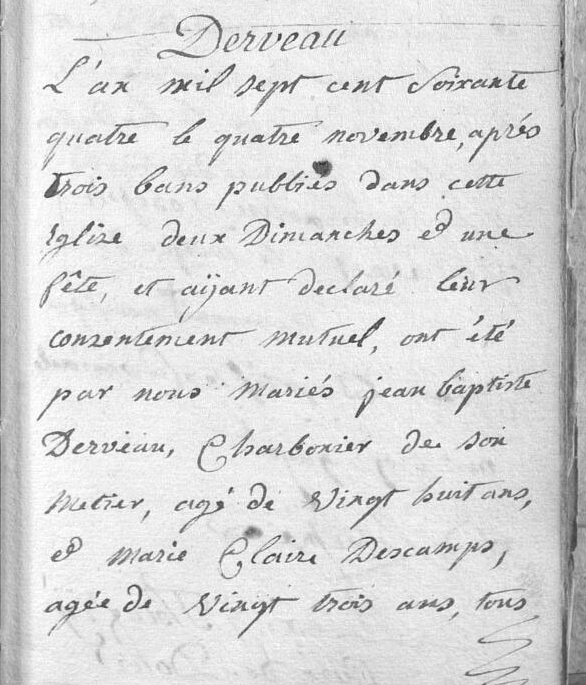 Derveau
L'an mil sept cent Soixante
quatre le quatre novembre, aprés
trois bans publiés dans cette
Eglise deux Dimanches et une
fête, et aÿant declaré leur
consentement mutuel, ont été
par nous Mariés jean baptiste
Derveau, Charbonier de son
Metier, agé de Vingt huit ans,
et Marie Claire Descamps,
agée de Vingt trois ans, tous